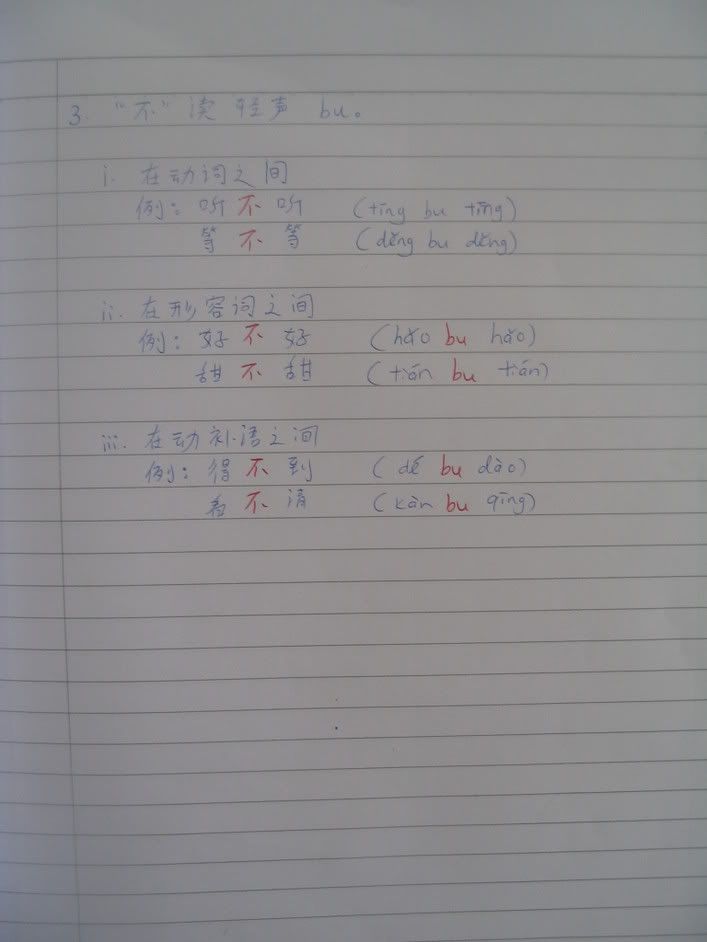 3. "不"读轻声 bu。
i. 在动词之间
例：听不听 (tīng bu tīng)
等不等 (děng bu děng)
ii. 在形容词之间
例：好不好 (hǎo bu hǎo)
甜不甜 (tián bu tián)
iii. 在动补语之间
例：得不到 (dé bu dào)
看不清 (kàn bu qīng)